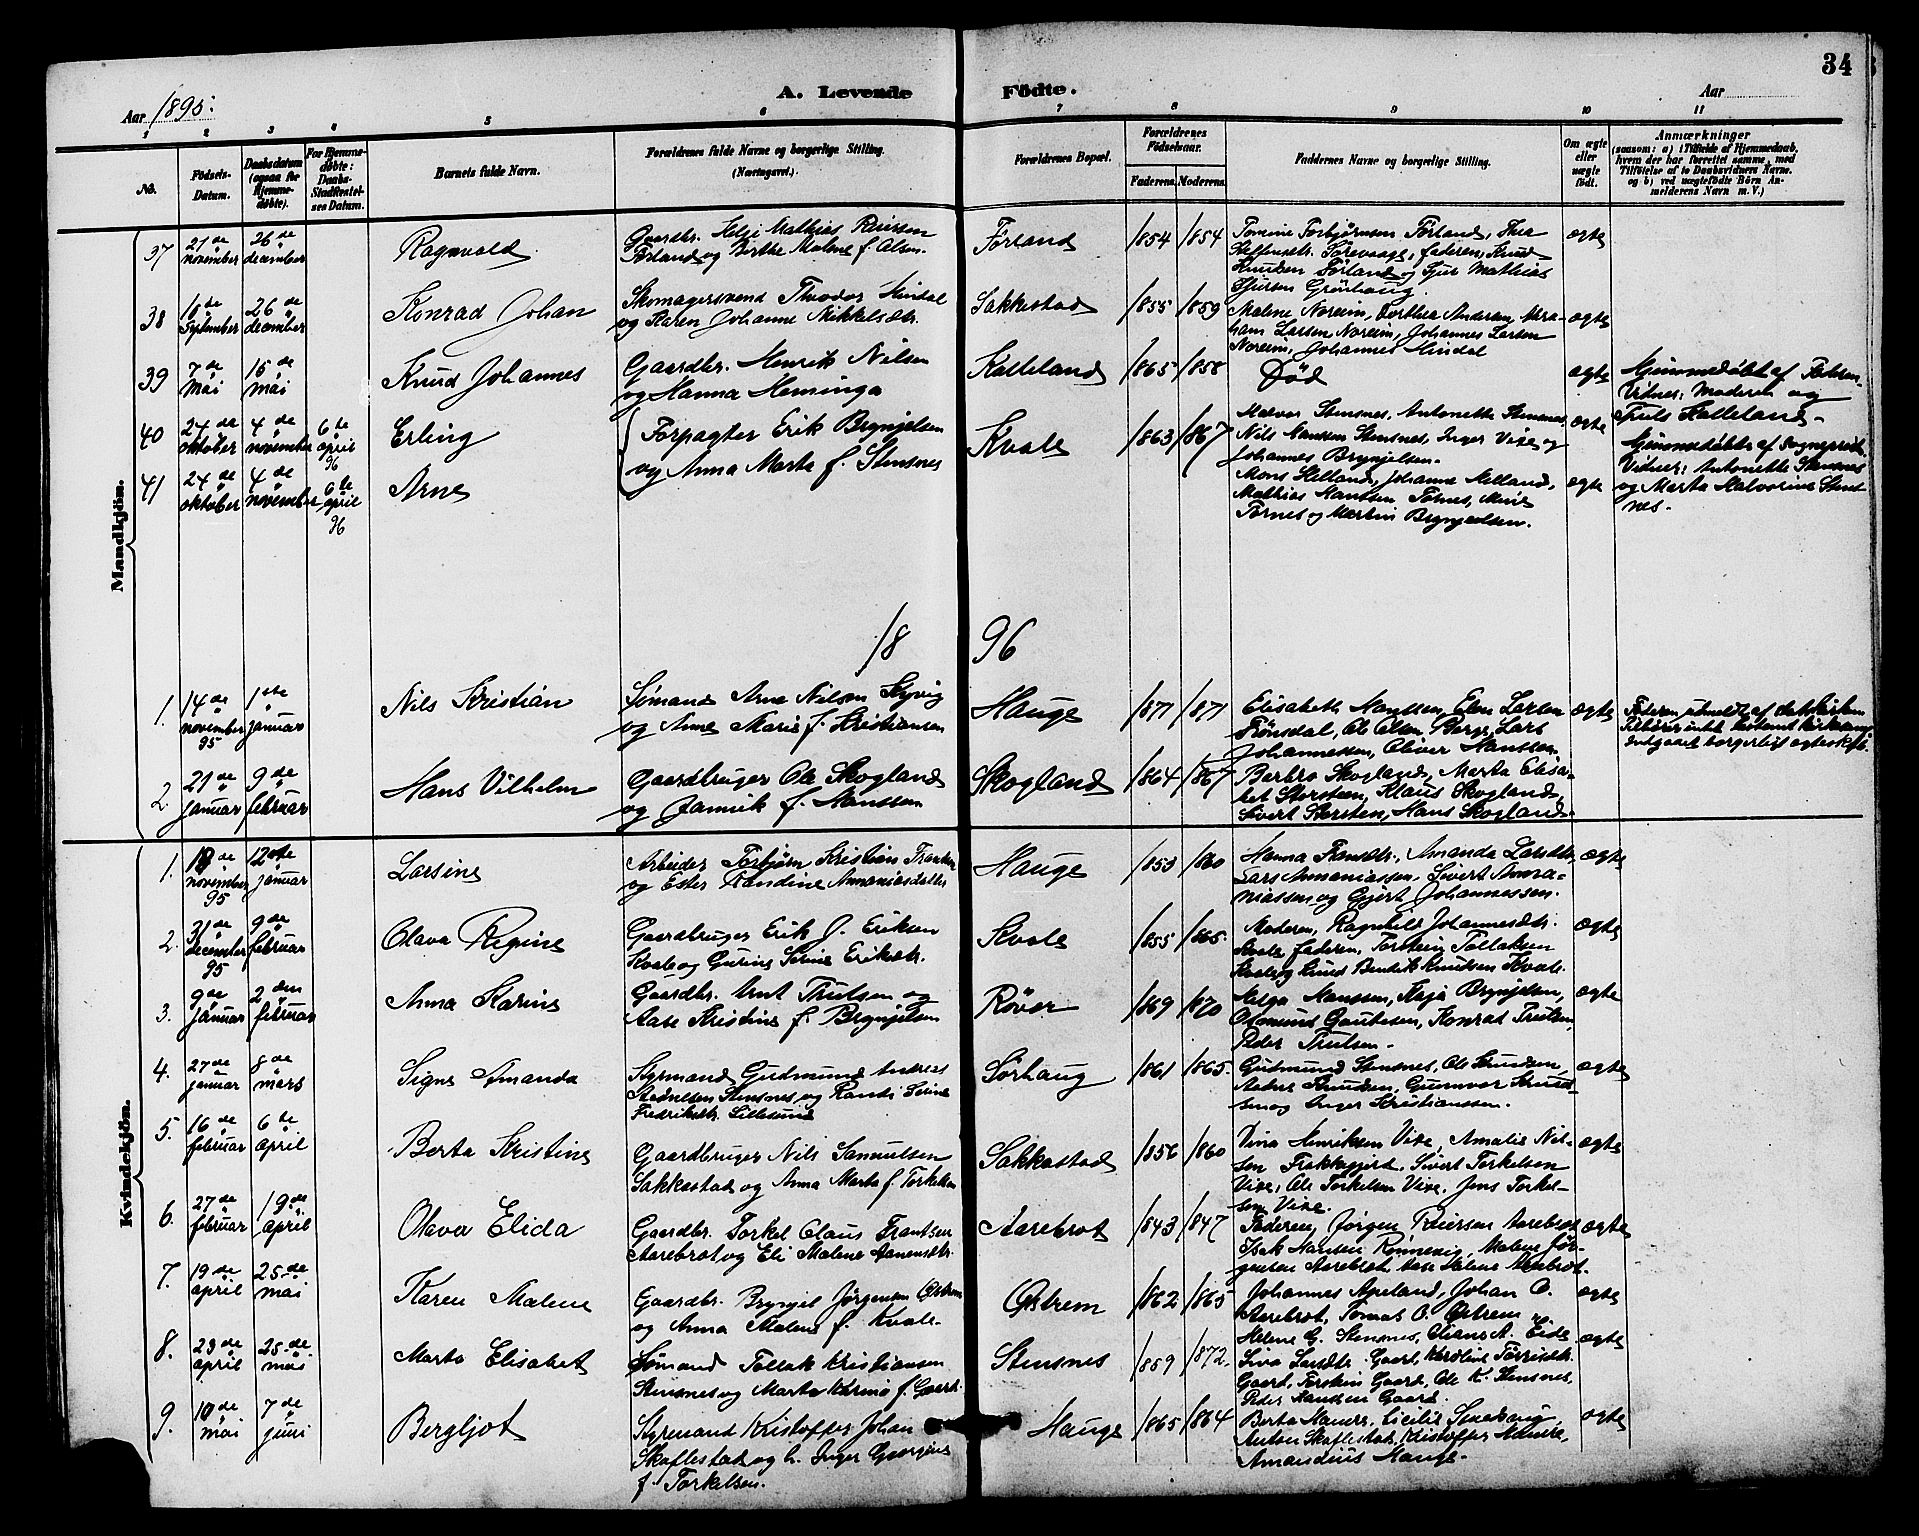 34
Aar 1895.
A. Levende Födte.
Aar
1 2 3 4 5 6 7 8 9 10 11
No. Födsels-Datum. Daabsdatum (ogsaa for Hjemmedøbte). For Hjemmedøbte: Daabs-Stadfæstelses Datum. Barnets fulde Navn. Forældrenes fulde Navne og borgerlige Stilling. (Næringsvei.) Forældrenes Bopæl. Forældrenes Födselsaar. Faderens. Moderens. Faddernes Navne og borgerlige Stilling. Om ægte eller uægte födt. Anmærkninger (saasom: a) i Tilfælde af Hjemmedaab, hvem der har forrettet samme, med Tilföielse af to Daabsvidners Navne. og b) ved uægtefödte Börn Anmelderens Navn m. V.)
Mandkjön.
37 21de november 26de december Ragnvald Gaardbr. Helje Mathias Reiersen Förland og Berthe Malene f. Olsen. Förland 1854 1854 Tomine Torbjörnsen Förland, Thea Steffensdtr. Torevaage, faderen, Knud Knudsen Förland og Gjer Mathias Grönhaug ægte
38 16de September 26de december Konrad Johan Skomagersvend Theodor Hindal og Karen Johanne Mikkelsdtr. Sakkestad 1855 1859 Malene Noreim, Dorthea Andersen, Abraham Larsen Noreim, Johannes Larsen Noreim, Johannes Hindal ægte
39 7de mai 15de mai Knud Johannes Gaardbr. Henrik Nilsen og Hanna Hemminga Kalleland 1865 1858 Död ægte Hjemmedöbt af Faderen. Vidner: Moderen og Truls Kalleland.
40 24de oktober 4de november 6te april 96 Erling Forpagter Erik Brynjelsen og Anna Marta f. Stensnes Kvale 1863 1867 Halvor Stensnes, Antonette Stensnes, Nils Hanssen Stensnes, Inger Vixe og Johannes Brynjelsen. ægte Hjemmedöbte af Sogneprest. Vidner: Antonette Stensnes og Marta Halvorine Stensnes.
41 24de oktober 4de november 6te april 96 Arne Mons Helland, Johanne Helland, Mathias Hanssen Tornes, Marie Tornes og Martin Brynjelsen. ægte
1896
1. 14de november 95 1ste januar Nils Kristian Sömand Arne Nilsen Skyvig og Anne Marie f. Kristiansen Hauge 1871 1871 Elisabeth Hanssen, Elen Larsen Rönsdal, Ole Olsen Berge, Lars Johannessen, Oliver Hanssen ægte Faderen udmeldt af statskirken Tilhörer intet bestemt kirkesamf. Indgaaet borgerligt egteskab.
2. 21de januar 9de februar Hans Vilhelm Gaardbruger Ole Skogland og Jannik f. Hanssen Skogland 1864 1867 Berbro Skogland, Marta Elisabet Storsteen, Klaus Skogland, Sivert Storsten, Hans Skogland. ægte
Kvindekjön.
1. 18de november 95 12te januar Larsine Arbeider Torbjörn Kristian Frantsen og Ester Randine Annaniasdatter Hauge 1853 1860 Hanna Fransdtr., Amanda Larsdtr, Lars Annaniassen, Sivert Annaniassen og Gjert Johannessen. ægte
2. 31de december 95 9de februar Olava Regine Gaardbruger Erik J. Eriksen Kvale og Gurine Serine Eriksdtr. Kvale 1855 1865. Moderen, Ragnhild Johannesdtr. Kvale, faderen, Torstein Tollaksen Kvale og Knud Bendik Knudsen Kvale. ægte
3. 9de januar 2den februar Anna Karine Gaardbr. Arnt Trulsen og Aase Kristine f. Brynjelsen Röver 1869 1870 Helga Hanssen, Kaja Brynjelsen, Osmund Gautesen, Konrad Trulsen, Peder Trulsen. ægte
4. 27de januar 8de mars Signe Amanda Styrmand Gudmund Andreas Stensnes og Randi Serine Fredriksdtr. Lillesund Sörhaug 1861 1865. Gudmund Stensnes, Ole Knudsen, Aadne Knudsen, Gunnvor Knudsen og Inger Kristianssen. ægte
5. 16de februar 6te april Berta Kristine Gaardbruger Nils Samuelsen Sakkestad og Anna Marta f. Torkelsen Sakkestad 1856 1860 Vina Henriksen Vixe, Amalie Nilsen Frakkagjerd, Sivert Torkelsen Vixe, Ole Torkelsen Vixe, Jens Torkelsen Vixe. ægte
6. 27de februar 19de april Olava Elida Gaardbr. Torkel Claus Frantsen Aarebrot og Eli Malene Aanensdtr. Aarebrot 1843 1847 Faderen, Jörgen Reiersen Aarebrot Isak Hansen Rönnevig, Malene Jörgensen Aarebrot, Aase Malene Aarebrot. ægte
7. 19de april 25de mai Karen Malene Gaardbr. Brynjel Jörgensen Østrem og Anna Malene f. Kvale. Østrem 1862 1865 Johannes Apeland, Johan O. Aarebrot, Tomas O. Østrem, Helene G. Stensnes, Eliane A. Eide ægte
8. 23de april 25de mai Marta Elisabet Sömand Tollak Kristiansen Stensnes og Marta Karine f. Gaard. Stensnes 1859 1872. Siva Larsdtr. Gaard, Karoline Törrisdtr. Gaard, Torstein Gaard, Ole K. Stensnes, Peder Hansen Gaard ægte
9. 10de mai 7de juni Bergljot Styrmand Kristoffer Johan Skaflestad og h. Inger Georgine f. Torkelsen. Hauge 1865 1864 Berta Hauers, Cicilie Smedsvig, Anton Skaflestad, Kristoffer Hauge, Amandus Hauge. ægte